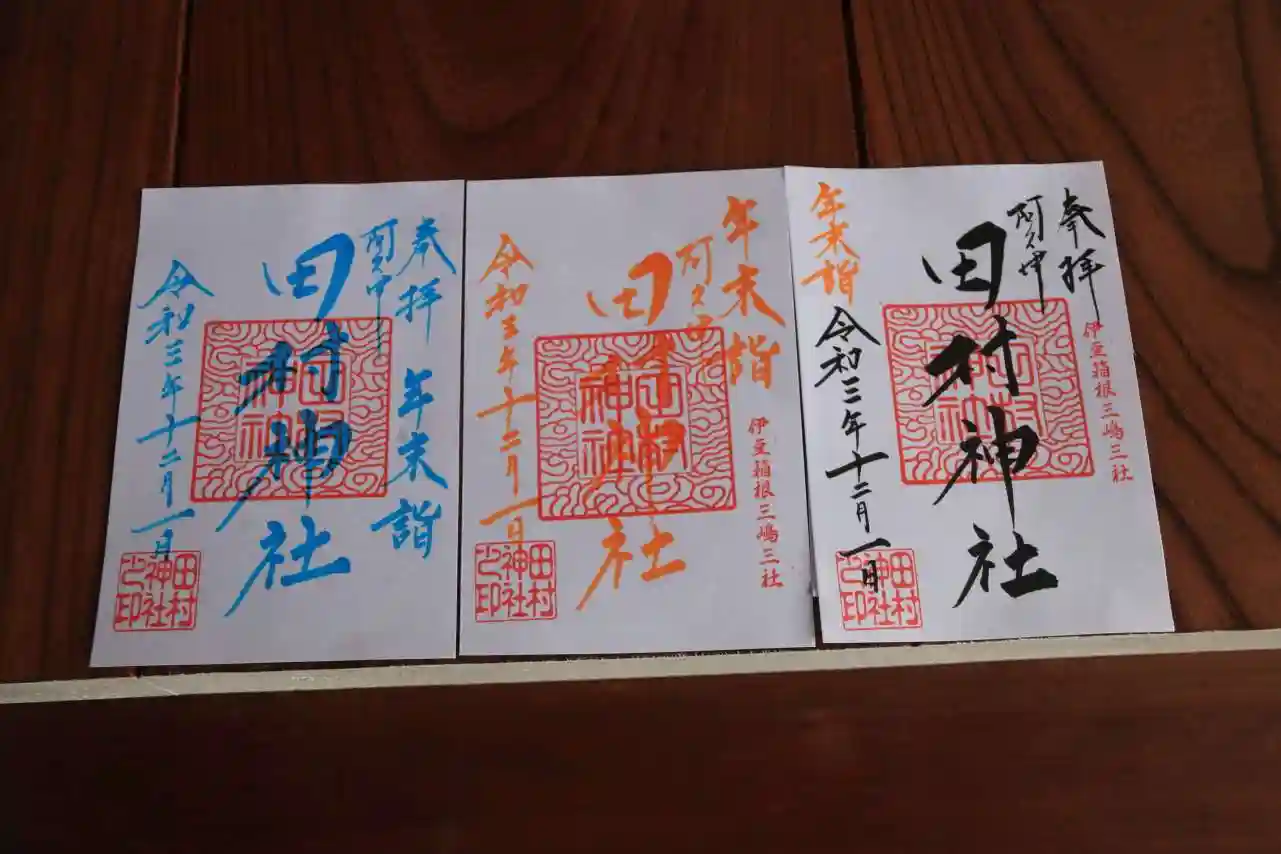 奉拝 年末詣
阿久津
田村神社
令和三年十二月一日
田村神社
田村神社之印
年末詣
阿久津
田村神社
令和三年十二月一日
伊豆箱根三嶋三社
田村神社
田村神社之印
奉拝
伊豆箱根三嶋三社
阿久津
田村神社
年末詣
令和三年十二月一日
田村神社
田村神社之印